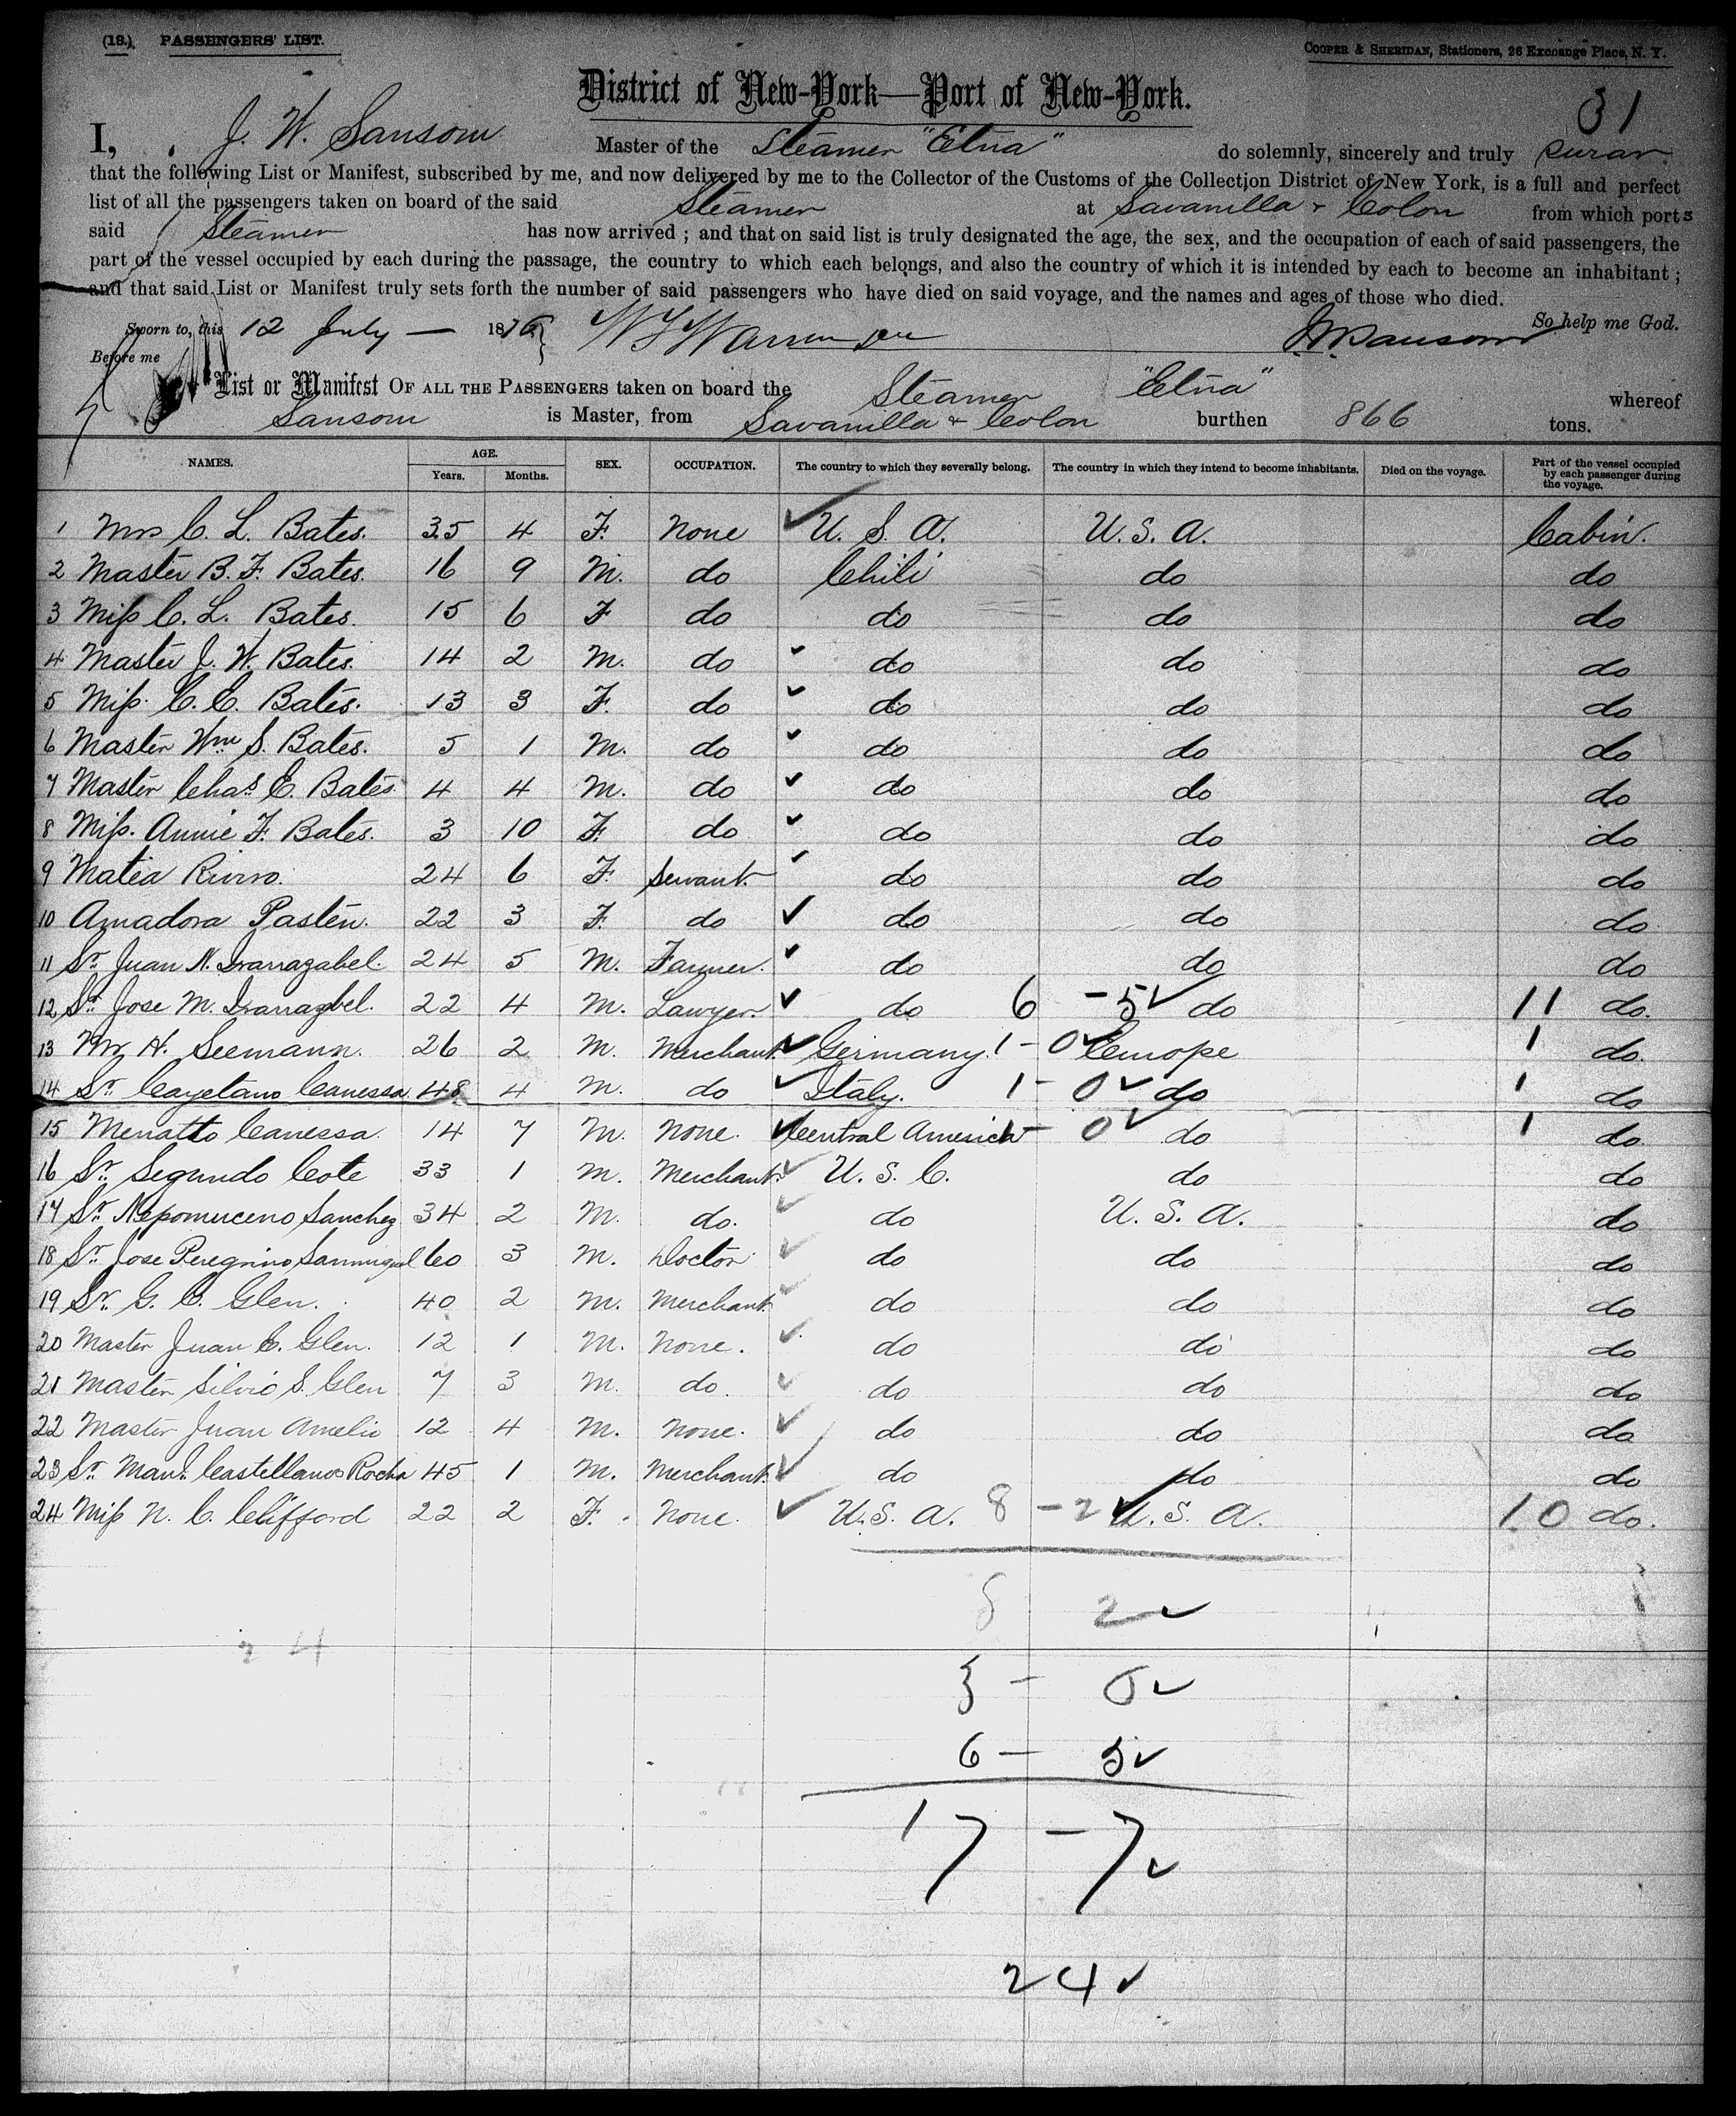 (18.) PASSENGERS' LIST.
COOPER & SHERIDAN, Stationers, 26 Exchange Place, N. Y.
District of New-York—Port of New-York.
31
I, J. W. Sansom Master of the Steamer "Etna" do solemnly, sincerely and truly swear
that the following List or Manifest, subscribed by me, and now delivered by me to the Collector of the Customs of the Collection District of New York, is a full and perfect
list of all the passengers taken on board of the said Steamer at Savanilla & Colon from which ports
said Steamer has now arrived ; and that on said list is truly designated the age, the sex, and the occupation of each of said passengers, the
part of the vessel occupied by each during the passage, the country to which each belongs, and also the country of which it is intended by each to become an inhabitant ;
and that said List or Manifest truly sets forth the number of said passengers who have died on said voyage, and the names and ages of those who died.
So help me God.
Sworn to, this 12 July — 1876
Before me
J W Sansom
List or Manifest OF ALL THE PASSENGERS taken on board the Steamer "Etna" whereof
Sansom is Master, from Savanilla & Colon burthen 866 tons.
NAMES. AGE. Years. Months. SEX. OCCUPATION. The country to which they severally belong. The country in which they intend to become inhabitants. Died on the voyage. Part of the vessel occupied by each passenger during the voyage.
1 Mrs C. L. Bates. 35 4 F. None ✓ U. S. A. U. S. A. Cabin.
2 Master B. F. Bates. 16 9 M. do Chili do do
3 Miss C. L. Bates. 15 6 F do do do do
4 Master J. W. Bates. 14 2 M. do ✓ do do do
5 Miss. C. C. Bates. 13 3 F. do ✓ do do do
6 Master Wm S. Bates. 5 1 M. do ✓ do do do
7 Master Chas. E. Bates 4 4 M. do ✓ do do do
8 Miss. Annie F. Bates. 3 10 F. do ✓ do do do
9 Matea 24 6 F. Servant. ✓ do do do
10 Amadora Pasten. 22 3 F. do ✓ do do do
11 Sr. Juan N. Irarrazabel. 24 5 M. Farmer. ✓ do do do
12 Sr. Jose M. Irarrazbel. 22 4 M. Lawyer. ✓ do 6 - 5 ✓ do 11 do.
13 Mr H. Seemann. 26 2 M. Merchant. ✓ Germany. 1 - 0 ✓ Europe 1 do.
14 Sr. Cayetano Canessa 48 4 M. do ✓ Italy. 1 - 0 ✓ do 1 do
15 Menatto Canessa. 14 7 M. None. ✓ Central America 1 - 0 ✓ do 1 do
16 Sr. Segundo Cote 33 1 M. Merchant. ✓ U. S. C. do do
17 Sr. Nepomuceno Sanchez 34 2 M. do. ✓ do U. S. A. do
18 Sr. Jose Peregrino Sanmiguel 60 3 M. Doctor ✓ do do do
19 Sr. G. C. Glen. 40 2 M. Merchant. ✓ do do do
20 Master Juan C. Glen. 12 1 M. None. ✓ do do do
21 Master Silvio S. Glen 7 3 M. do. ✓ do do do
22 Master Juan Amelio 12 4 M. None. ✓ do do do
23 Sr. Manl. Castellanos Rocha 45 1 M. Merchant. ✓ do do do
24 Miss N. C. Clifford 22 2 F. None. ✓ U. S. A. 8 - 2 ✓ U. S. A. 10 do.
8 2 ✓
24
3 - 0 ✓
6 - 5 ✓
17 - 7 ✓
24 ✓